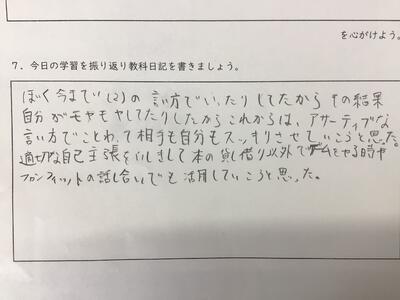 を心がけよう。
7．今日の学習を振り返り教科日記を書きましょう。
ぼく今まで(2)の言い方でいったりしてたからその結果
自分がモヤモヤしてたりしたからこれからは、アサーティブな
言い方でことわって相手も自分もスッキリさせていこうと思った。
適切な自己主張をいしきして本の貸し借り以外でゲームをやる時や
の話し合いでも活用していこうと思った。